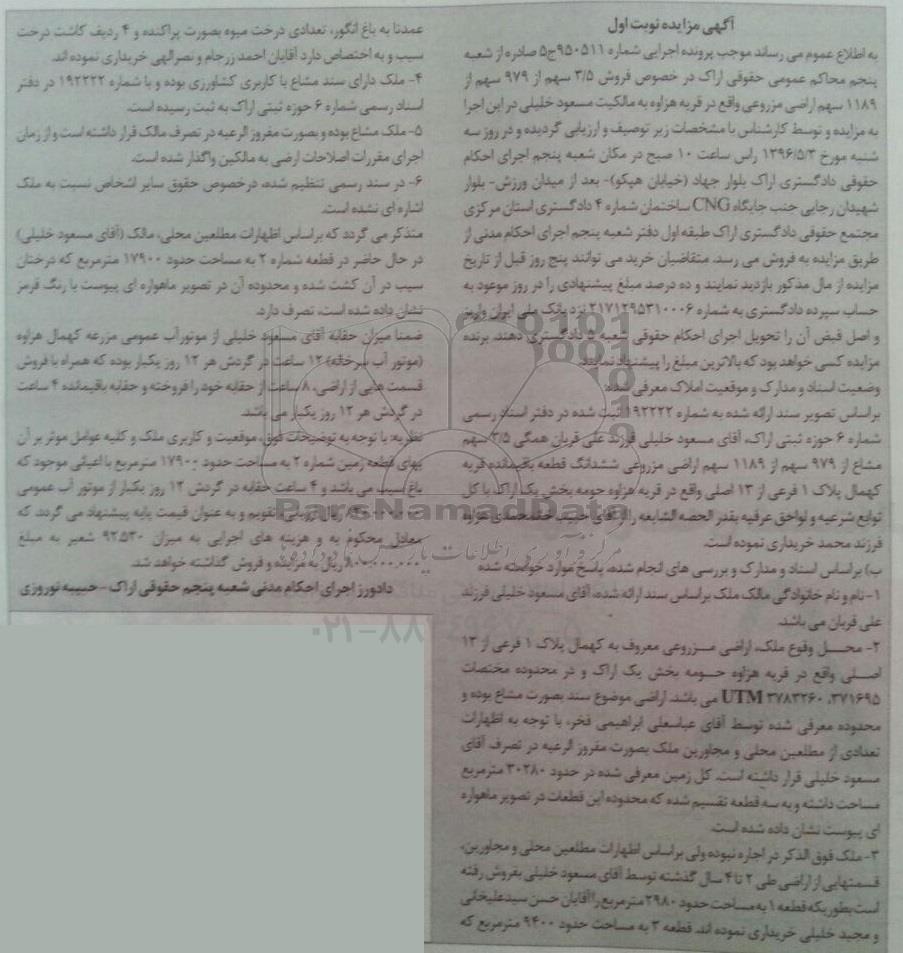 آگهی مزایده نوبت اول
به اطلاع عموم می رساند موجب پرونده اجرایی شماره ۹۵۰۵۱۱ج۵ صادره از شعبه
پنجم محاکم عمومی حقوقی اراک در خصوص فروش ۳/۵ سهم از ۹۷۹ سهم از
۱۱۸۹ سهم اراضی مزروعی واقع در قریه هزاوه به مالکیت مسعود خلیلی در این اجرا
به مزایده و توسط کارشناس با مشخصات زیر توصیف و ارزیابی گردیده و در روز سه
شنبه مورخ ۱۳۹۶/۵/۳ راس ساعت ۱۰ صبح در مکان شعبه پنجم اجرای احکام
حقوقی دادگستری اراک بلوار جهاد (خیابان هپکو)- بعد از میدان ورزش- بلوار
شهیدان رجایی جنب جایگاه CNG ساختمان شماره ۴ دادگستری استان مرکزی
مجتمع حقوقی دادگستری اراک طبقه اول دفتر شعبه پنجم اجرای احکام مدنی از
طریق مزایده به فروش می رسد. متقاضیان خرید می توانند پنج روز قبل از تاریخ
مزایده از مال مذکور بازدید نمایند و ده درصد مبلغ پیشنهادی را در روز موعود به
حساب سپرده دادگستری به شماره ۲۱۷۱۲۹۵۳۱۰۰۰۶ نزد بانک ملی ایران واریز
و اصل فیش آن را تحویل اجرای احکام حقوقی شعبه ۵ دادگستری دهند. برنده
مزایده کسی خواهد بود که بالاترین مبلغ را پیشنهاد نمایند.
وضعیت اسناد و مدارک و موقعیت املاک معرفی شده:
براساس تصویر سند ارائه شده به شماره ۱۹۲۲۲۲ ثبت شده در دفتر اسناد رسمی
شماره ۶ حوزه ثبتی اراک، آقای مسعود خلیلی فرزند علی قربان همگی ۳/۵ سهم
مشاع از ۹۷۹ سهم از ۱۱۸۹ سهم اراضی مزروعی ششدانگ قطعه باقیمانده قریه
کهمال پلاک ۱ فرعی از ۱۳ اصلی واقع در قریه هزاوه حومه بخش یک اراک با کل
توابع شرعیه و لواحق عرفیه بقدر الحصه الشایعه را از آقای حبیب خانمحمدی هزاوه
فرزند محمد خریداری نموده است.
ب) براساس اسناد و مدارک و بررسی های انجام شده، پاسخ موارد خواسته شده
۱- نام و نام خانوادگی مالک ملک براساس سند ارائه شده، آقای مسعود خلیلی فرزند
علی قربان می باشد.
۲- محل وقوع ملک، اراضی مزروعی معروف به کهمال پلاک ۱ فرعی از ۱۳
اصلی واقع در قریه هزاوه حومه بخش یک اراک و در محدوده مختصات
۳۷۱۶۹۵، ۳۷۸۳۲۶۰ UTM می باشد. اراضی موضوع سند بصورت مشاع بوده و
محدوده معرفی شده توسط آقای عباسعلی ابراهیمی فخر، با توجه به اظهارات
تعدادی از مطلعین محلی و مجاورین ملک بصورت مفروز الرعیه در تصرف آقای
مسعود خلیلی قرار داشته است. کل زمین معرفی شده در حدود ۳۰۲۸۰ مترمربع
مساحت داشته و به سه قطعه تقسیم شده که محدوده این قطعات در تصویر ماهواره
ای پیوست نشان داده شده است.
۳- ملک فوق الذکر در اجاره نبوده ولی براساس اظهارات مطلعین محلی و مجاورین،
قسمتهایی از اراضی طی ۲ تا ۴ سال گذشته توسط آقای مسعود خلیلی بفروش رفته
است بطوریکه قطعه ۱ به مساحت حدود ۲۹۸۰ مترمربع را آقایان حسن سیدعلیخانی
و مجید خلیلی خریداری نموده اند. قطعه ۳ به مساحت حدود ۹۴۰۰ مترمربع که
عمدتا به باغ انگور، تعدادی درخت میوه بصورت پراکنده و ۴ ردیف کاشت درخت
سیب و به اختصاص دارد آقایان احمد زرجام و نصرالهی خریداری نموده اند.
۴- ملک دارای سند مشاع با کاربری کشاورزی بوده و با شماره ۱۹۲۲۲۲ در دفتر
اسناد رسمی شماره ۶ حوزه ثبتی اراک به ثبت رسیده است.
۵- ملک مشاع بوده و بصورت مفروز الرعیه در تصرف مالک قرار داشته است و از زمان
اجرای مقررات اصلاحات ارضی به مالکین واگذار شده است.
۶- در سند رسمی تنظیم شده، درخصوص حقوق سایر اشخاص نسبت به ملک
اشاره ای نشده است.
متذکر می گردد که براساس اظهارات مطلعین محلی، مالک (آقای مسعود خلیلی)
در حال حاضر در قطعه شماره ۲ به مساحت حدود ۱۷۹۰۰ مترمربع که درختان
سیب در آن کشت شده و محدوده آن در تصویر ماهواره ای پیوست با رنگ قرمز
نشان داده شده است، تصرف دارد.
ضمنا میزان حقابه آقای مسعود خلیلی از موتور آب عمومی مزرعه کهمال هزاوه
(موتور آب سرخانه) ۱۲ ساعت در گردش هر ۱۲ روز یکبار بوده که همراه با فروش
قسمت هایی از اراضی، ۸ ساعت از حقابه خود را فروخته و حقابه باقیمانده ۴ ساعت
در گردش هر ۱۲ روز یکبار می باشد.
نظریه: با توجه به توضیحات فوق، موقعیت و کاربری ملک و کلیه عوامل موثر بر آن
بهای قطعه زمین شماره ۲ به مساحت حدود ۱۷۹۰۰ مترمربع با اعیانی موجود که
باغ سیب می باشد و ۴ ساعت حقابه در گردش ۱۲ روز یکبار از موتور آب عمومی
ریال ارزیابی تقویم و به عنوان قیمت پایه پیشنهاد می گردد. که
معادل محکوم به و هزینه های اجرایی به میزان ۹۲،۵۳۰ شعیر به مبلغ
ریال به مزایده و فروش گذاشته خواهد شد.
دادورز اجرای احکام مدنی شعبه پنجم حقوقی اراک - حبیبه نوروزی
ParsNamadData
مرکز فرآوری اطلاعات پارس نماد داده ها